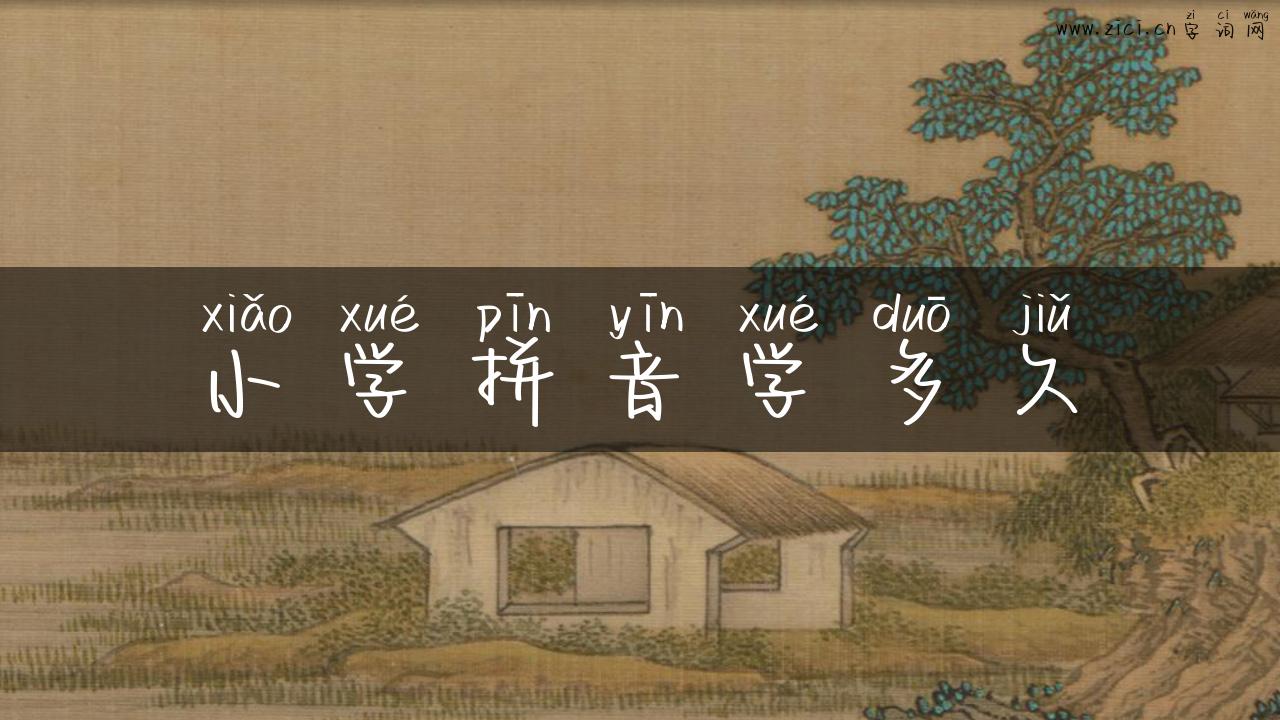 zì cí wǎng
www.zici.cn 字词网
xiǎo xué pīn yīn xué duō jiǔ
小学拼音学多久